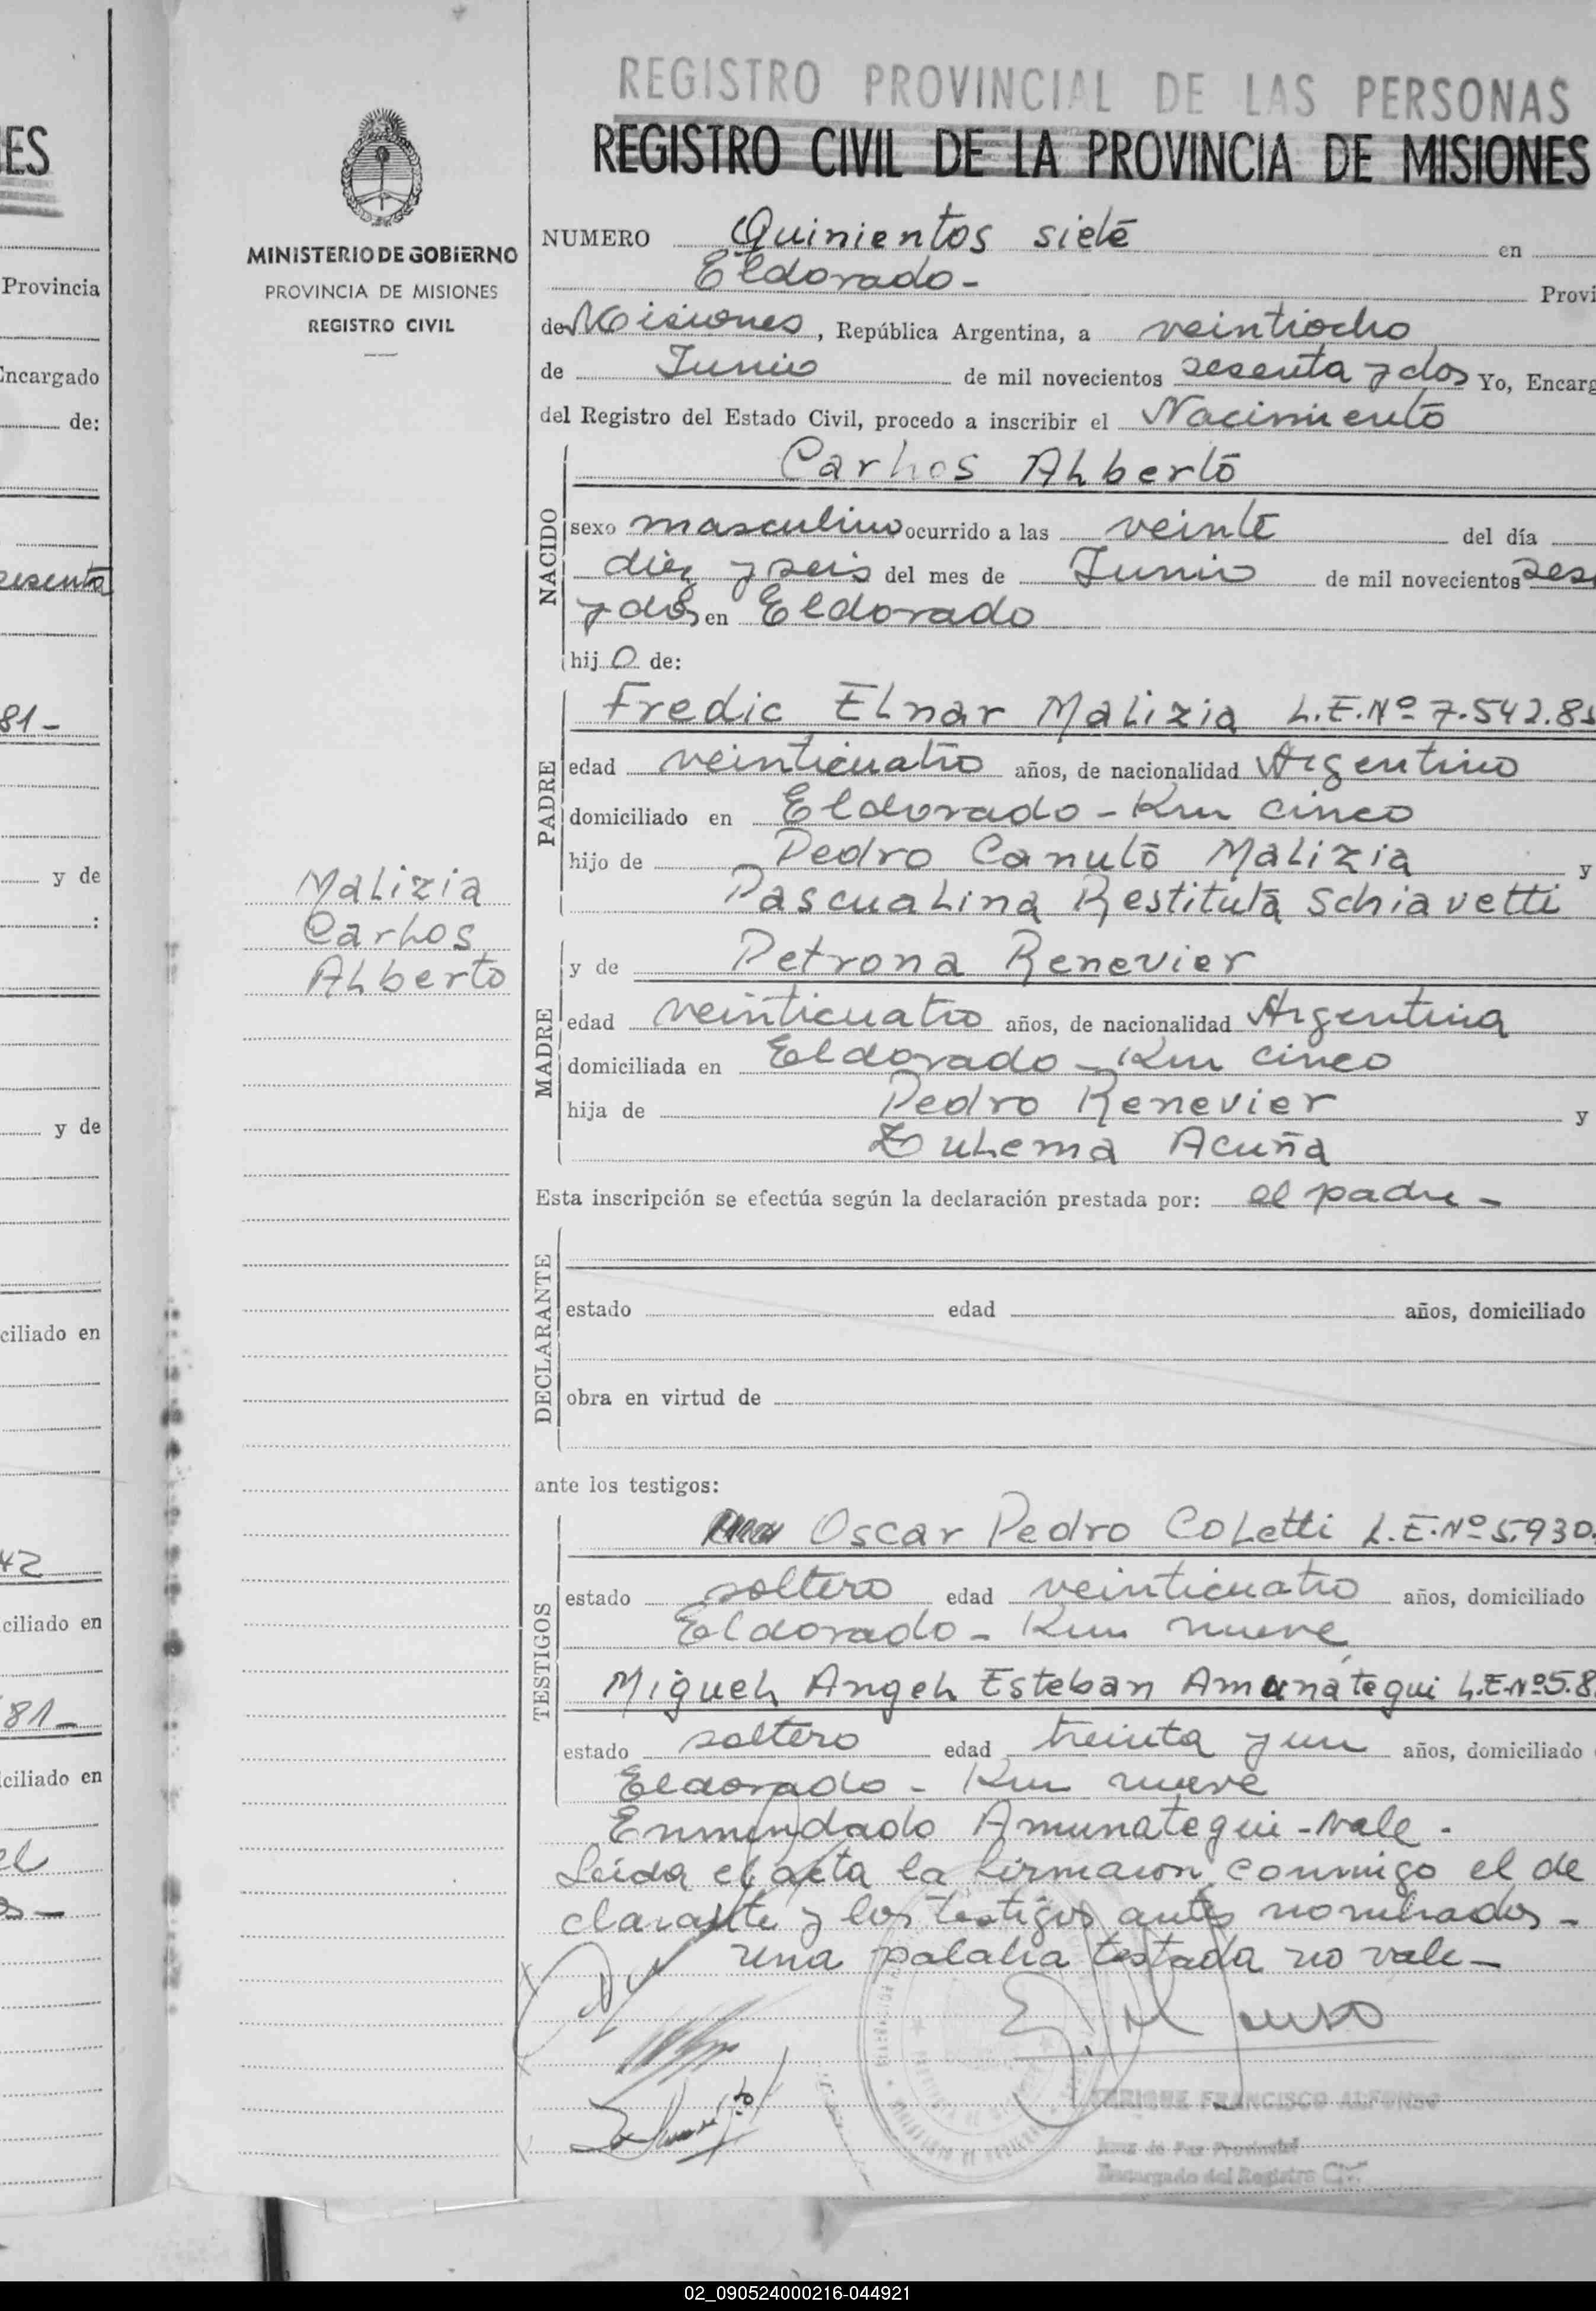 REGISTRO PROVINCIAL DE LAS PERSONAS
ES
REGISTRO CIVIL DE LA PROVINCIA DE MISIONES
MINISTERIO DE GOBIERNO
PROVINCIA DE MISIONES
REGISTRO CIVIL
NUMERO Quinientos siete en
Eldorado - Provi
de Misiones, República Argentina, a veintiocho
de Junio de mil novecientos sesenta y dos Yo, Encarg
del Registro del Estado Civil, procedo a inscribir el Nacimiento
NACIDO
Carlos Alberto
sexo masculino ocurrido a las veinte del día
diez y seis del mes de Junio de mil novecientos ses
y dos en Eldorado
hijo de:
PADRE
Fredic Elnar Malizia L.E.Nº 7.542.8
edad veinticuatro años, de nacionalidad Argentino
domiciliado en Eldorado - Km cinco
hijo de Pedro Canuto Malizia y
Pascualina Restituta Schiavetti
Malizia
Carlos
Alberto
MADRE
y de Petrona Renevier
edad veinticuatro años, de nacionalidad Argentina
domiciliada en Eldorado - Km cinco
hija de Pedro Renevier y
Zulema Acuña
Esta inscripción se efectúa según la declaración prestada por: el padre -
DECLARANTE
estado edad años, domiciliado
obra en virtud de
ante los testigos:
TESTIGOS
Oscar Pedro Coletti L.E.Nº 5.930.
estado soltero edad veinticuatro años, domiciliado
Eldorado - Km nueve
Miguel Angel Esteban Amunátegui L.E.Nº 5.8
estado soltero edad treinta y un años, domiciliado
Eldorado - Km nueve
Enmendado Amunátegui - Vale -
Leída el acta la firmaron conmigo el de
clarante y los testigos antes nombrados -
una palabra testada no vale -
ENRIQUE FRANCISCO ALFONSO
Juez de Paz Provincial
Encargado del Registro Civ.
Provincia
Encargado
de:
esenta
81-
y de
:
y de
ciliado en
42
ciliado en
81-
ciliado en
el
02_090524000216-044921